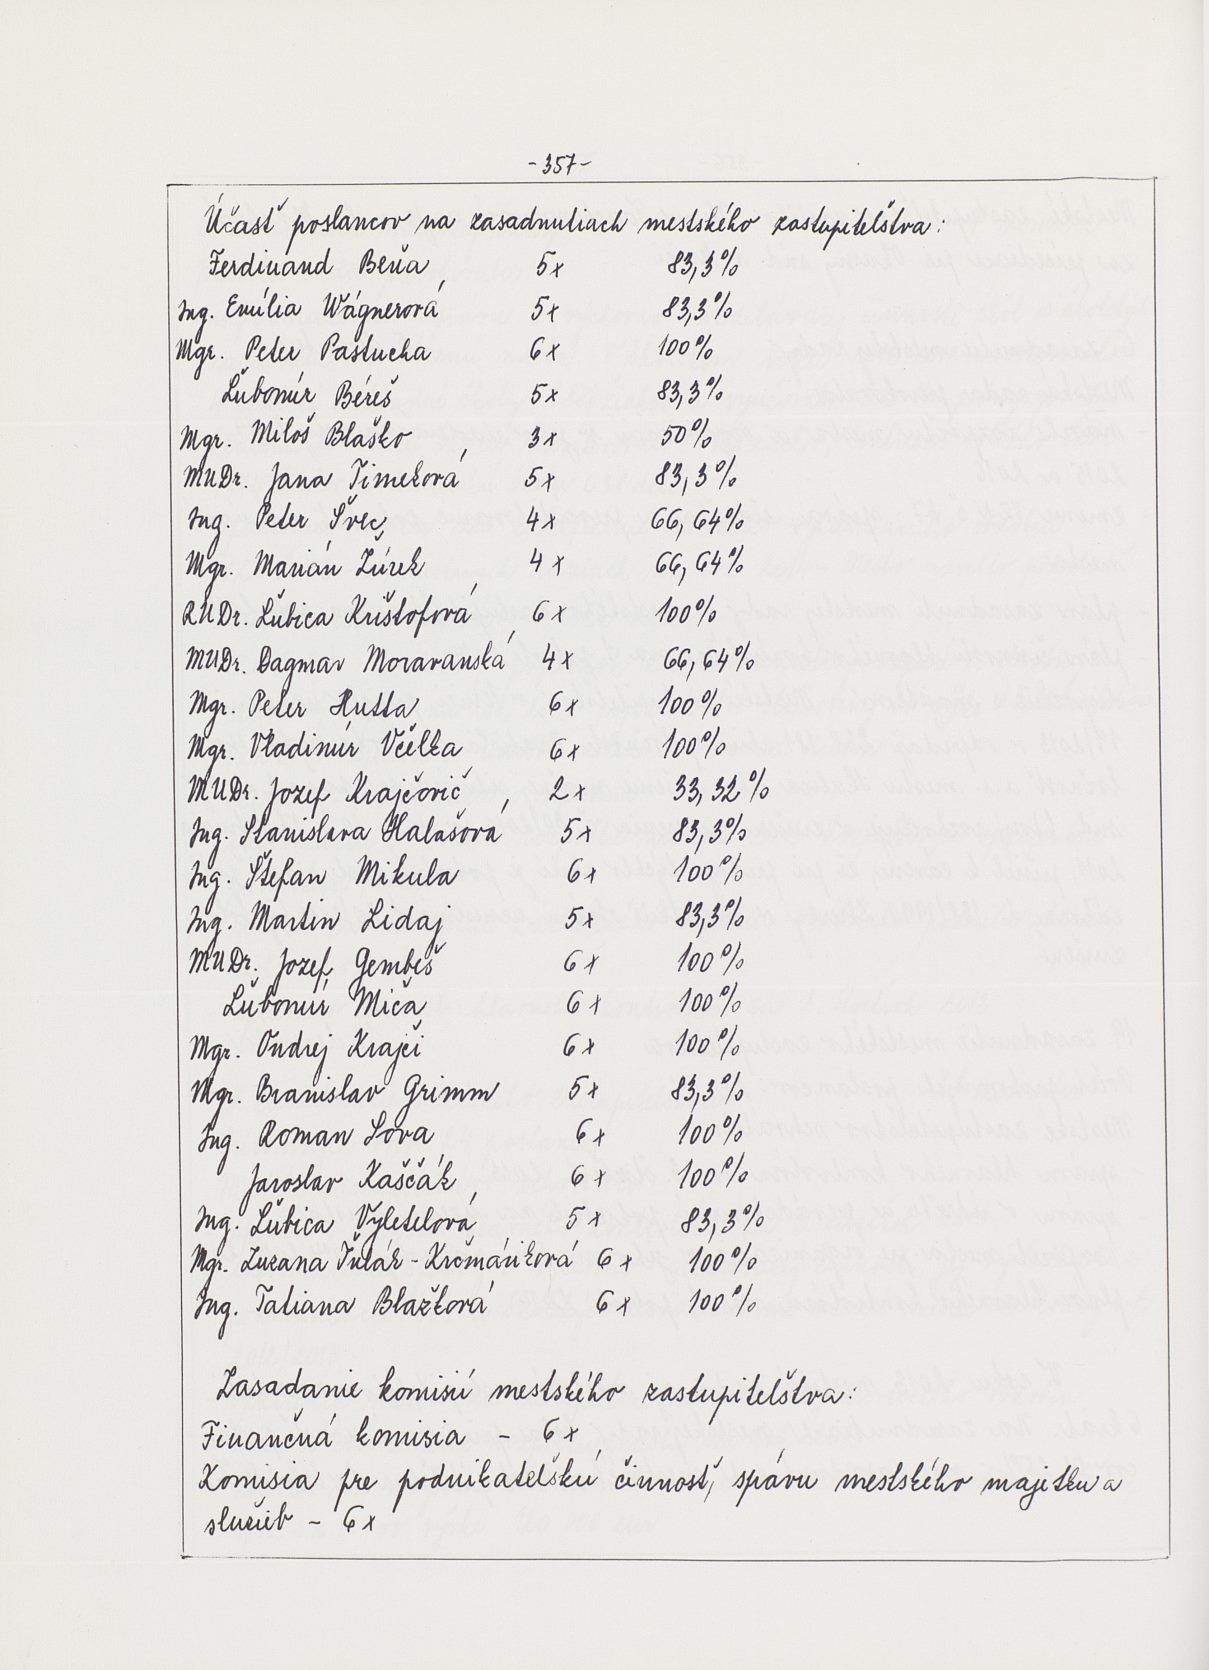 -357-
Účasť poslancov na zasadnutiach mestského zastupiteľstva:
Ferdinand Beňa 5x 83,3%
Ing. Emília Wágnerová 5x 83,3%
Mgr. Peter Pastucha 6x 100%
Ľubomír Béreš 5x 83,3%
Mgr. Miloš Blaško 3x 50%
MUDr. Jana Timeková 5x 83,3%
Ing. Peter Švec 4x 66,64%
Mgr. Marián Žúrek 4x 66,64%
RNDr. Ľubica Krištofová 6x 100%
MUDr. Dagmar Moravanská 4x 66,64%
Mgr. Peter Hutta 6x 100%
Mgr. Vladimír Včelka 6x 100%
MUDr. Jozef Krajčovič 2x 33,32%
Ing. Stanislava Halašová 5x 83,3%
Ing. Štefan Mikula 6x 100%
Ing. Martin Lidaj 5x 83,3%
MUDr. Jozef Gembeš 6x 100%
Ľubomír Miča 6x 100%
Mgr. Ondrej Krajči 6x 100%
Mgr. Branislav Grimm 5x 83,3%
Ing. Roman Sova 6x 100%
Jaroslav Kaščák 6x 100%
Ing. Ľubica Vyletelová 5x 83,3%
Mgr. Zuzana Žulák-Krčmáriková 6x 100%
Ing. Tatiana Blažková 6x 100%
Zasadanie komisií mestského zastupiteľstva:
Finančná komisia - 6x
Komisia pre podnikateľskú činnosť, správu mestského majetku a
služieb - 6x